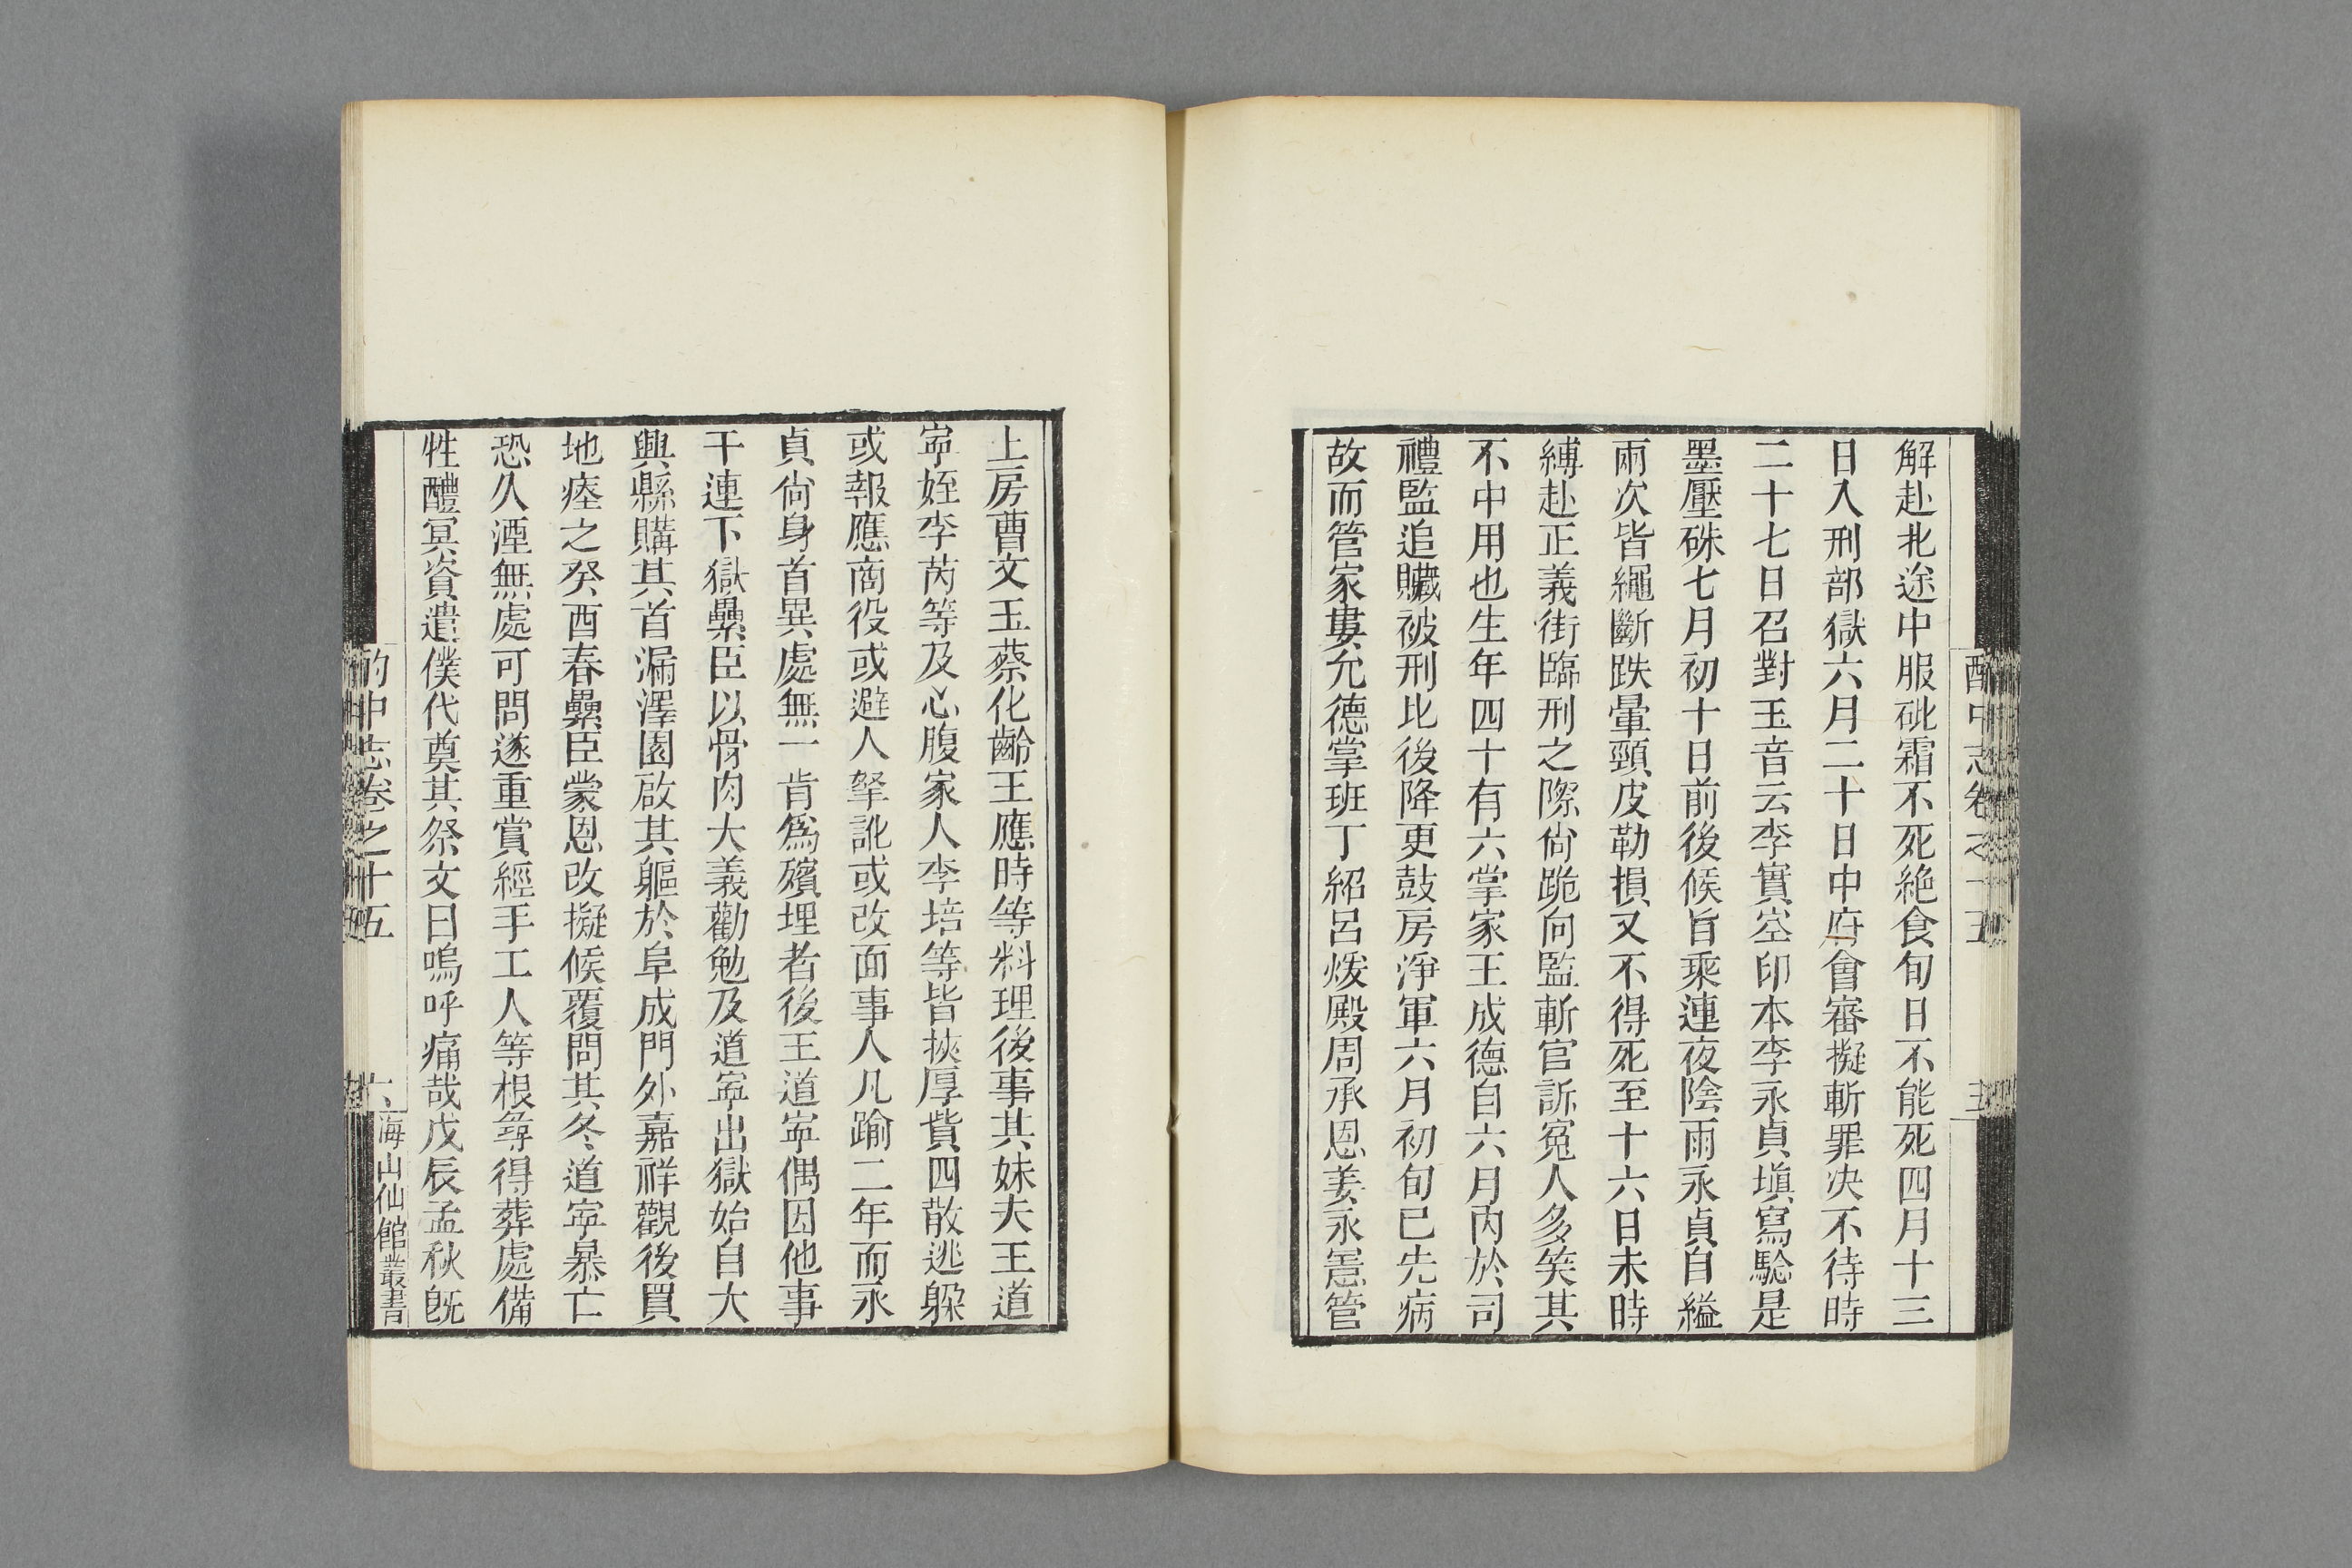 解赴北途中服砒霜不死絶食旬日不能死四月十三
日入刑部獄六月二十日中府會審擬斬罪决不待時
二十七日召對玉音云李實空印本李永貞塡寫騐是
墨壓硃七月初十日前後候旨乘連夜陰雨永貞自縊
兩次皆繩斷跌暈頸皮勒損又不得死至十六日未時
縛赴正義街臨刑之際尙跪向監斬官訴寃人多笑其
不中用也生年四十有六掌家王成德自六月內於司
禮監追贜被刑比後降更鼓房淨軍六月初旬已先病
故而管家婁允德掌班丁紹呂煖殿周承恩姜永憲管
酌中志卷之十五
上房曹文玉蔡化齡王應時等料理後事其妹夫王道
寕姪李芮等及心腹家人李培等皆挾厚貲四散逃躱
或報應商役或避人拏訛或改面事人凡踰二年而永
貞尙身首異處無一肯爲殯埋者後王道寕偶因他事
干連下獄纍臣以骨肉大義勸勉及道寕出獄始自大
興縣購其首漏澤園啟其軀於阜成門外嘉祥觀後買
地瘗之癸酉春纍臣蒙恩改擬候覆問其冬道寕暴亡
恐久湮無處可問遂重賞經手工人等根尋得葬處備
牲醴冥資遣僕代奠其祭文曰嗚呼痛哉戊辰孟秋旣
酌中志卷之十五
海山仙館叢書